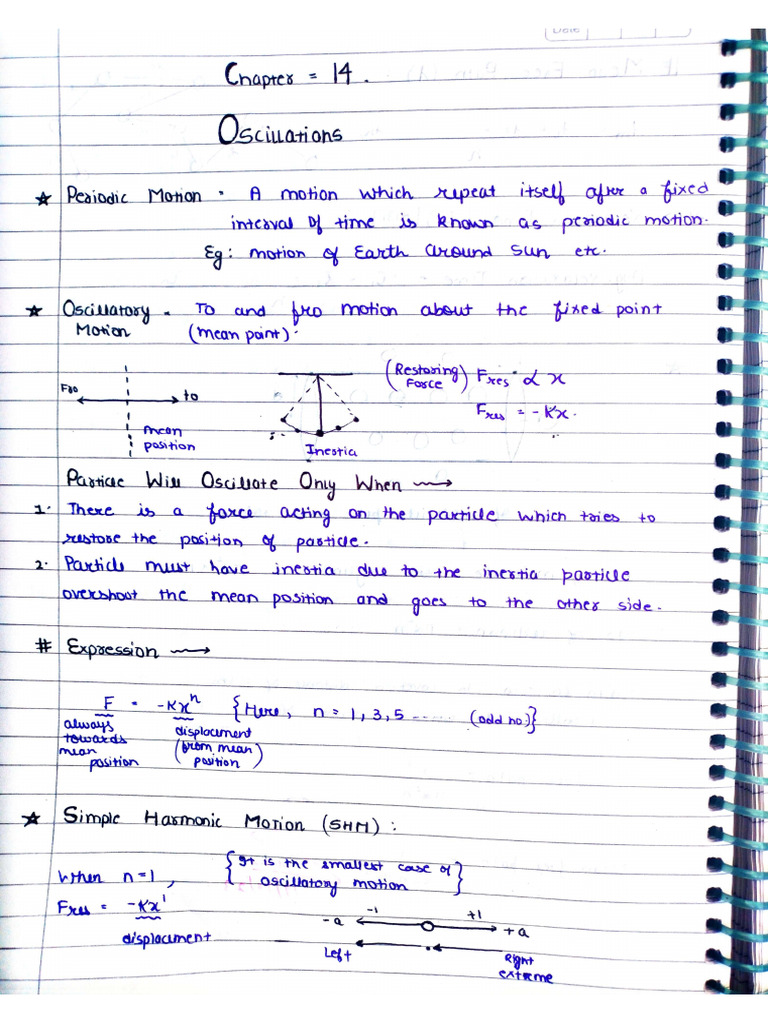 Date
Chapter = 14.
Oscillations
★ Periodic Motion = A motion which repeat itself after a fixed
interval of time is known as periodic motion.
Eg: motion of Earth around Sun etc.
★ Oscillatory = To and fro motion about the fixed point
Motion (mean point).
(Restoring Force) Fres ∝ x
Fro to
Fres = -Kx.
mean
position
Inertia
Particle Will Oscillate Only When ⟿
1. There is a force acting on the particle which tries to
restore the position of particle.
2. Particle must have inertia due to the inertia particle
overshoot the mean position and goes to the other side.
# Expression ⟿
F = -Kxⁿ {Here, n = 1, 3, 5 ...... (odd no.)}
always displacement
towards (from mean
mean position)
position
★ Simple Harmonic Motion (SHM) :
When n=1, {It is the smallest case of
oscillatory motion}
Fres = -Kx¹
displacement
-a -1 +1 +a
Left Right
extreme